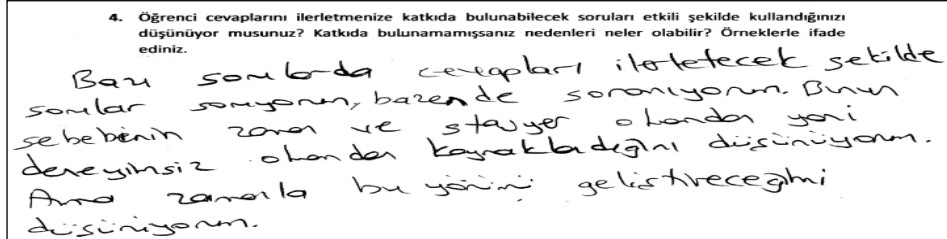 4. Öğrenci cevaplarını ilerletmenize katkıda bulunabilecek soruları etkili şekilde kullandığınızı
düşünüyor musunuz? Katkıda bulunamamışsanız nedenleri neler olabilir? Örneklerle ifade
ediniz.
Bazı sorularda cevapları ilerletecek şekilde
sorular soruyorum, bazende soramıyorum. Bunun
sebebinin zaman ve stajyer olmamdan yani
deneyimsiz olmamdan kaynakladığını düşünüyorum.
Ama zamanla bu yönümü geliştireceğimi
düşünüyorum.